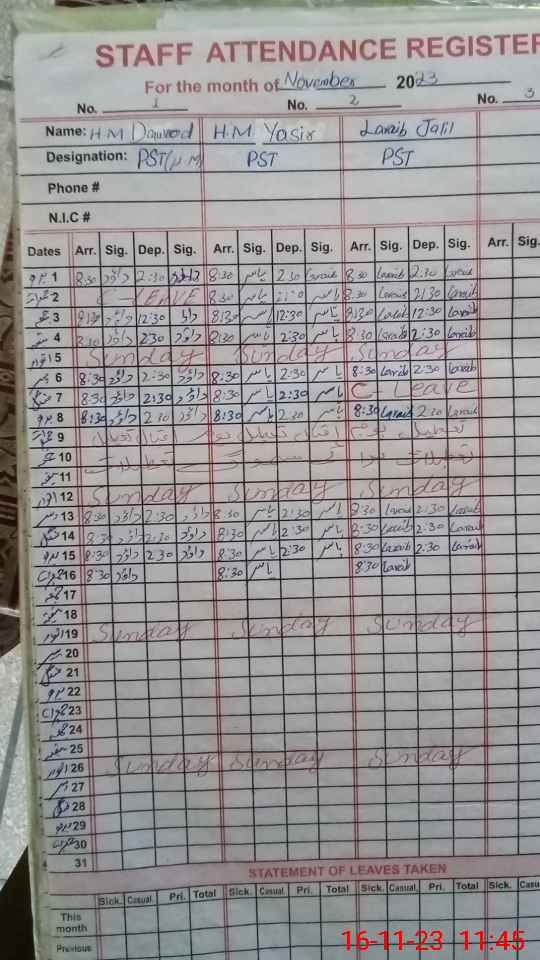 STAFF ATTENDANCE REGISTER
For the month of November 2023
No. 1 No. 2 No. 3
Name: H.M Dawood H.M Yasir Laraib Jalil
Designation: PST PST PST
Phone #
N.I.C #
Dates Arr. Sig. Dep. Sig. Arr. Sig. Dep. Sig. Arr. Sig. Dep. Sig. Arr. Sig.
1 8:30 داؤد 2:30 داؤد 8:30 یاسر 2:30 8:30 Laraib 2:30 Laraib
2 C-LEAVE 8:30 یاسر یاسر 8:30 Laraib 2:30 Laraib
3 8:30 داؤد 12:30 داؤد 8:30 یاسر 12:30 یاسر 8:30 Laraib 12:30 Laraib
4 8:30 داؤد 2:30 داؤد 8:30 یاسر 2:30 یاسر 8:30 Laraib 2:30 Laraib
5 اتوار Sunday Sunday Sunday
6 8:30 داؤد 2:30 داؤد 8:30 یاسر 2:30 یاسر 8:30 Laraib 2:30 Laraib
7 8:30 داؤد 2:30 داؤد 8:30 یاسر 2:30 یاسر C Leave
8 8:30 داؤد 2:30 داؤد 8:30 یاسر 2:30 یاسر 8:30 Laraib 2:30 Laraib
9 تعطیل یوم اقبال تعطیل یوم اقبال تعطیل
10
11
12 اتوار Sunday Sunday Sunday
13 8:30 داؤد 2:30 داؤد 8:30 یاسر 2:30 یاسر Laraib 2:30 Laraib
14 8:30 داؤد 2:30 داؤد 8:30 یاسر 2:30 یاسر 8:30 Laraib 2:30 Laraib
15 8:30 داؤد 2:30 داؤد 8:30 یاسر 2:30 یاسر 8:30 Laraib 2:30 Laraib
16 8:30 داؤد 8:30 یاسر 8:30 Laraib
17
18
19 اتوار Sunday Sunday Sunday
20
21
22
23
24
25
26 اتوار Sunday Sunday Sunday
27
28
29
30
31
STATEMENT OF LEAVES TAKEN
Sick. Casual. Pri. Total Sick. Casual. Pri. Total Sick. Casual. Pri. Total Sick. Casu
This month
Previous
16-11-23 11:45